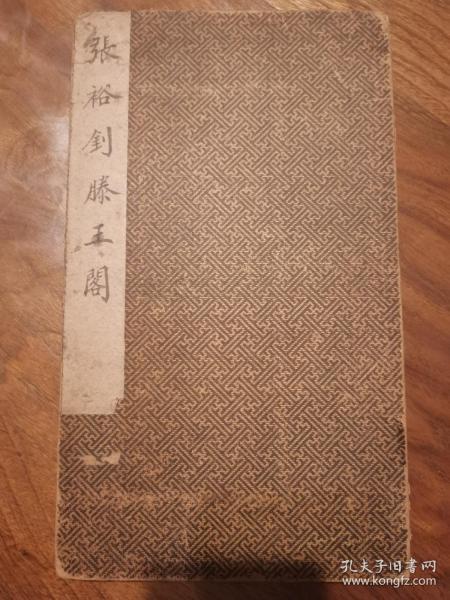 張裕釗滕王閣
孔夫子旧书网
www.kongfz.com